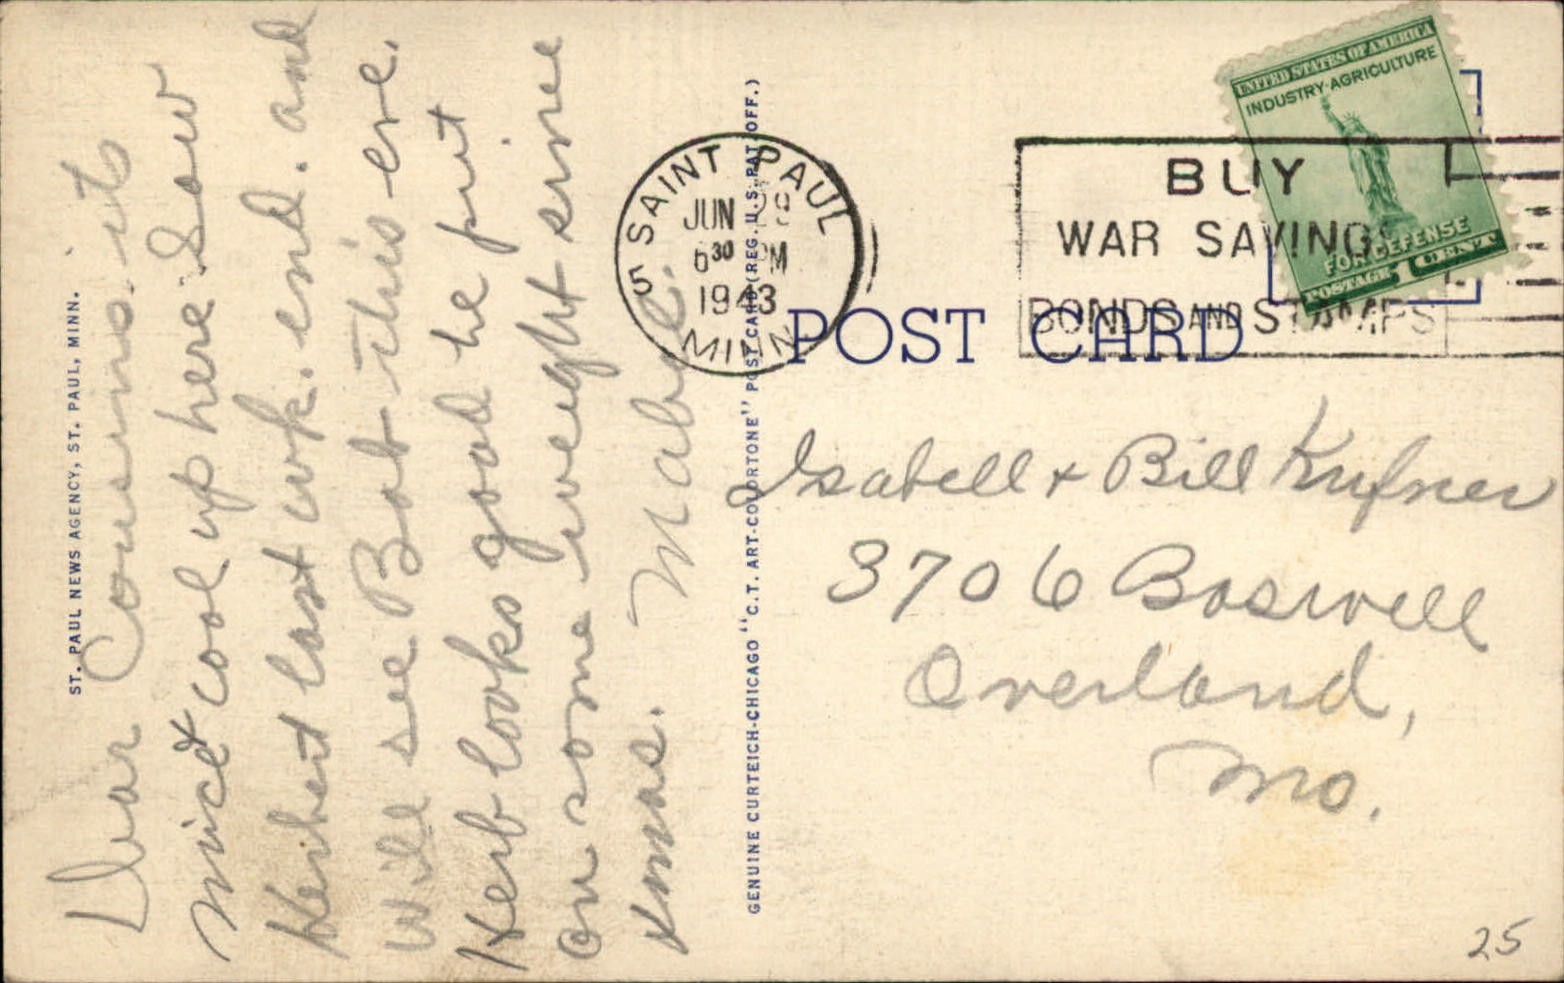 Dear Cousins: its
nice & cool up here. Saw
Herbert last wk. end. and
will see Bob this eve.
Herb looks good he put
on some weight since
Xmas. Mabel.
ST. PAUL NEWS AGENCY, ST. PAUL, MINN.
GENUINE CURTEICH-CHICAGO "C.T. ART-COLORTONE" POST CARD (REG. U.S. PAT. OFF.)
SAINT PAUL
5
JUN 29
6 30 PM
1943
MINN
BUY
WAR SAVINGS
BONDS AND STAMPS
UNITED STATES OF AMERICA
INDUSTRY·AGRICULTURE
FOR DEFENSE
POSTAGE 1 CENT
POST CARD
Isabell & Bill Kufner
3706 Boswell
Overland,
Mo.
25